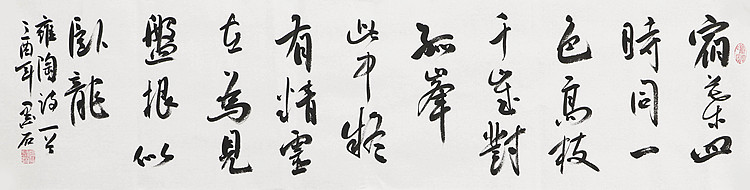 宿葉四
時同一
色高枝
千歲對
孤峯
此中疑
有精靈
在為見
盤根似
臥龍
雍陶詩一首
乙酉年墨石